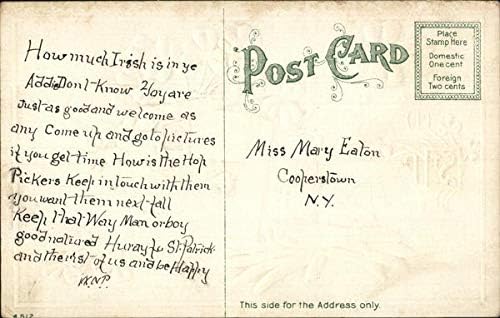 How much Irish is in ye
Adde Don't Know You are
Just as good and welcome as
any Come up and go to pictures
if you get time How is the Hop
Pickers Keep in touch with them
you want them next fall
Keep that Way Man or boy
good natured Huray for St. Patrick
and the rest of us and be Happy
W.N.P.
4512
POST CARD
Place
Stamp Here
Domestic
One cent
Foreign
Two cents
Miss Mary Eaton
Cooperstown
N.Y.
This side for the Address only.